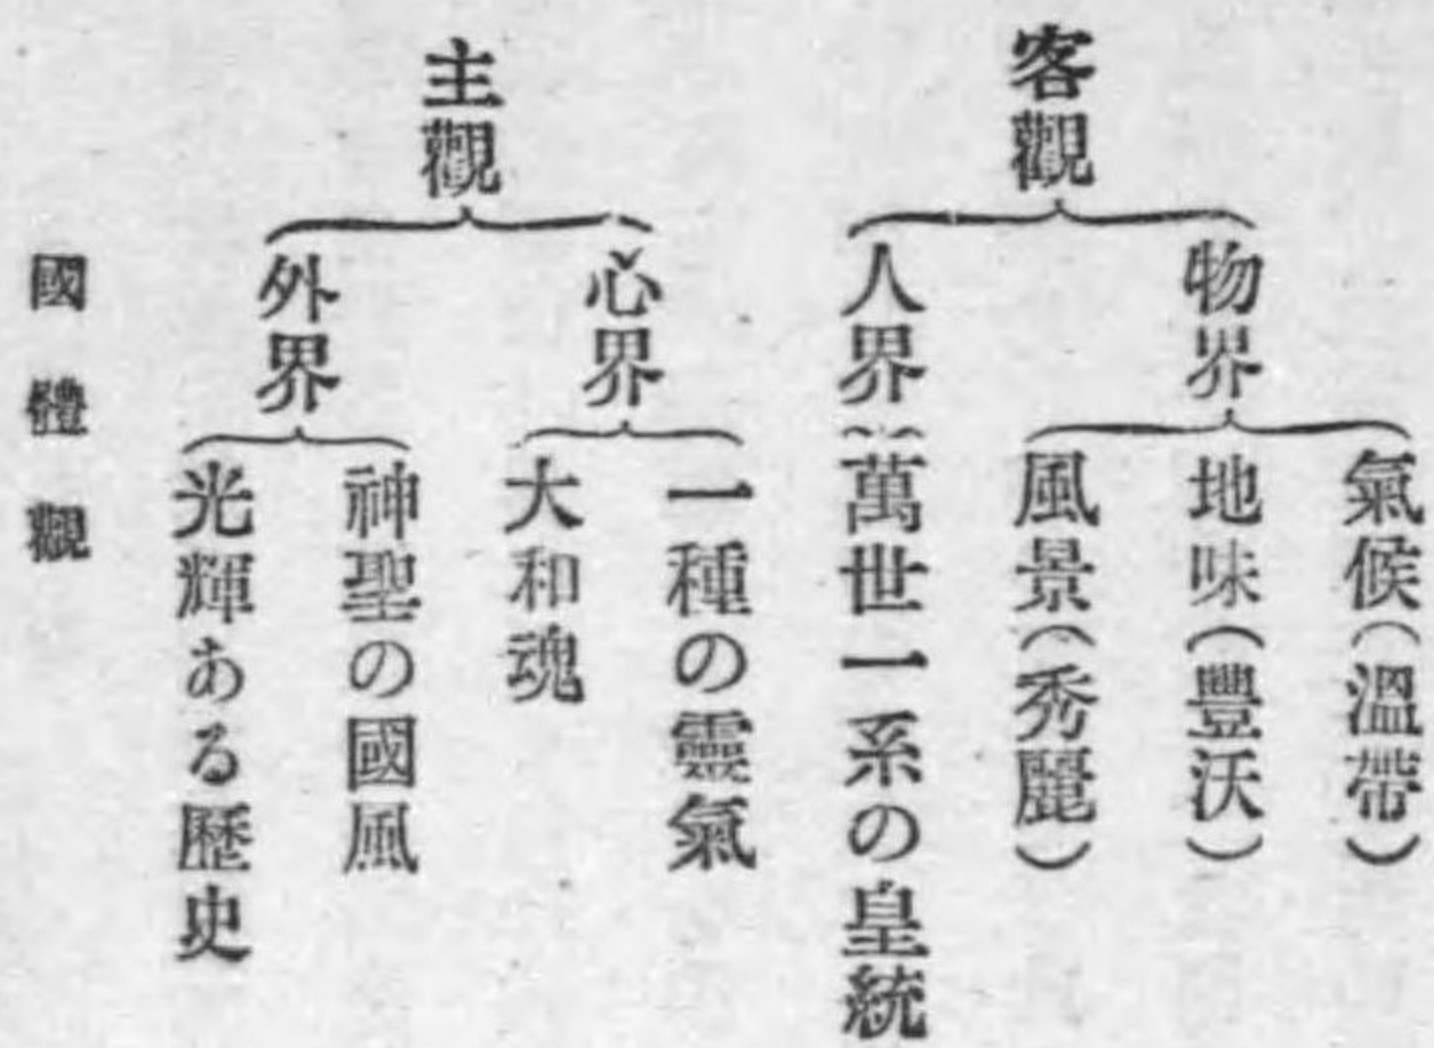 客觀
物界
氣候(溫帶)
地味(豐沃)
風景(秀麗)
人界
萬世一系の皇統
主觀
心界
一種の靈氣
大和魂
外界
神聖の國風
光輝ある歷史
國體觀